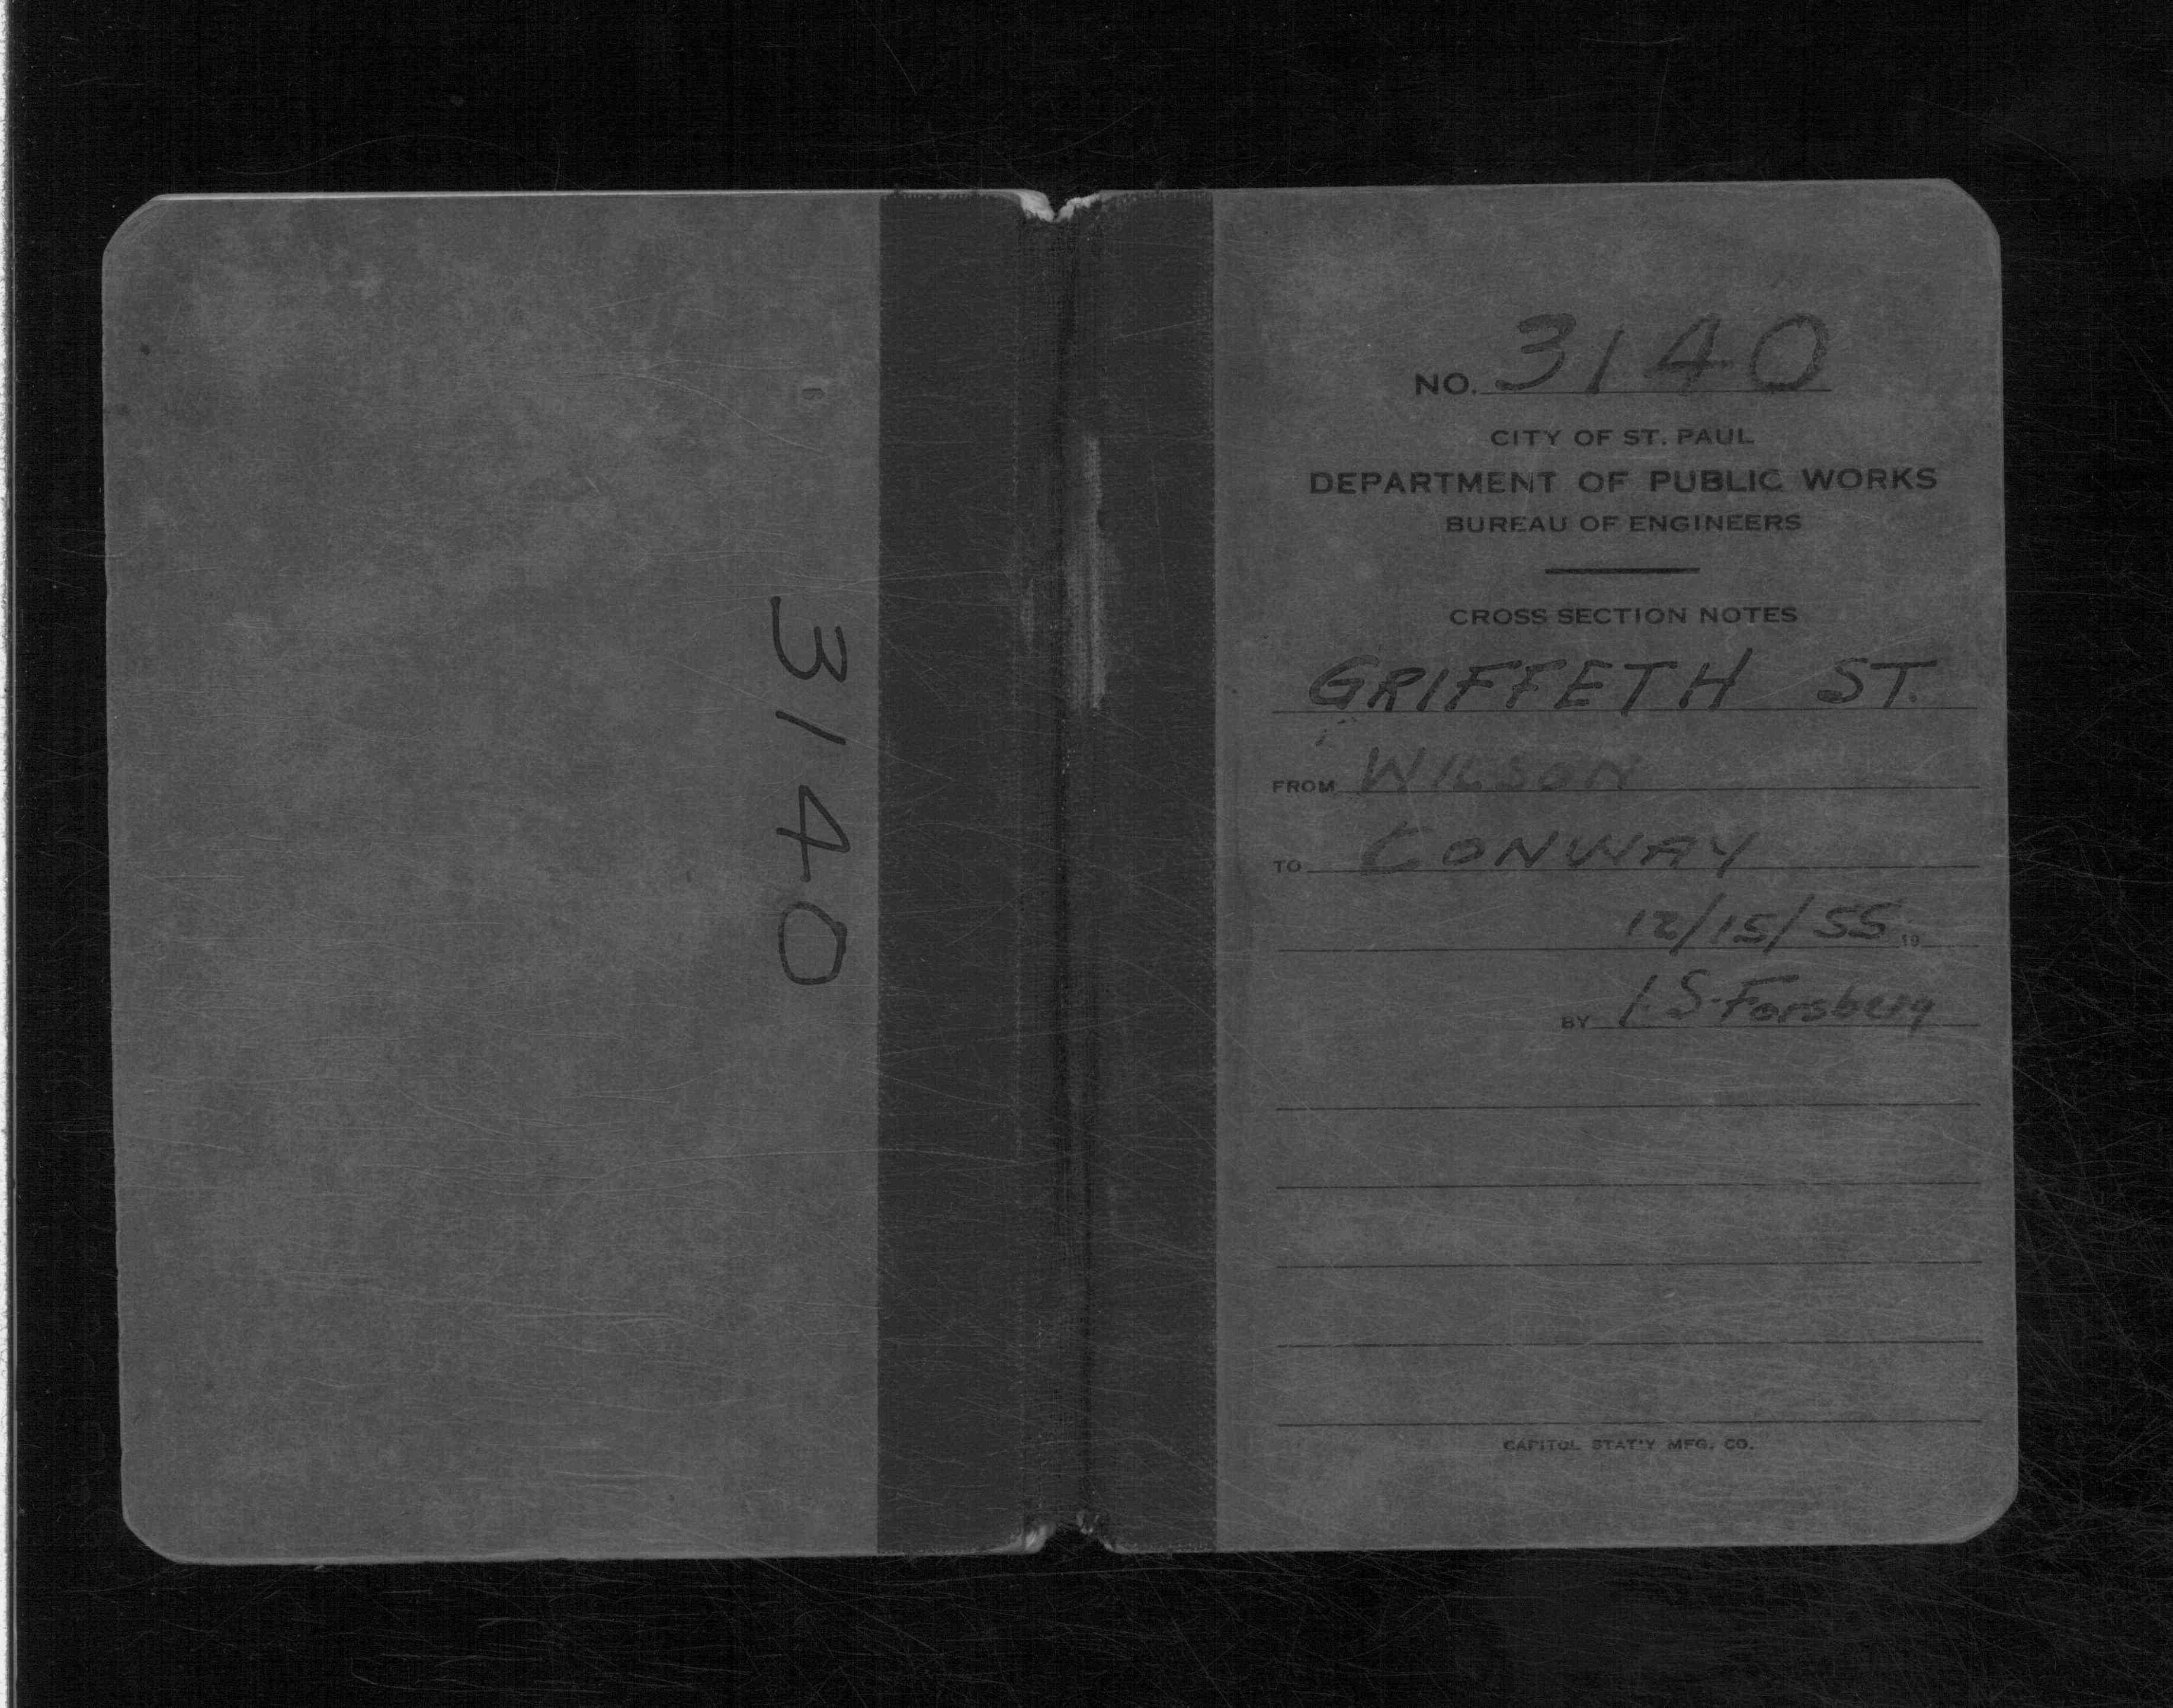 3140
NO. 3140
CITY OF ST. PAUL
DEPARTMENT OF PUBLIC WORKS
BUREAU OF ENGINEERS
CROSS SECTION NOTES
GRIFFETH ST.
FROM WILSON
TO CONWAY
12/15/55 19
BY I. S. Forsberg
CAPITOL STAT'Y MFG. CO.